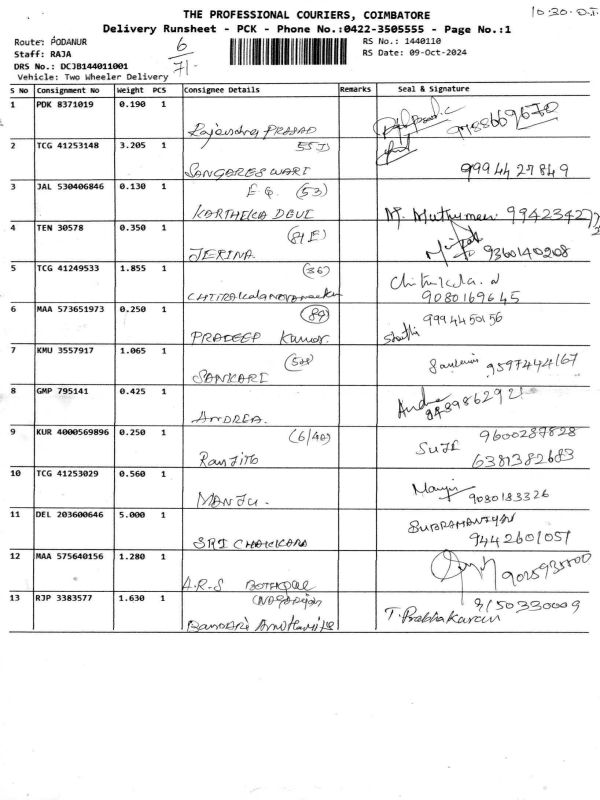 10.30. D.T.
THE PROFESSIONAL COURIERS, COIMBATORE
Delivery Runsheet - PCK - Phone No.:0422-3505555 - Page No.:1
Route: PODANUR
Staff: RAJA
DRS No.: DCJB144011001
Vehicle: Two Wheeler Delivery
6
71-
RS No.: 1440110
RS Date: 09-Oct-2024
S No Consignment No Weight PCS Consignee Details Remarks Seal & Signature
1 PDK 8371019 0.190 1 Rajendra PRASAD
2 TCG 41253148 3.205 1 55J SANGARESWARI 9994427849
3 JAL 530406846 0.130 1 E.Q. (53) KARTHEKA DEVI M. Muthumeen
4 TEN 30578 0.350 1 (81E) JERINA 9360140208
5 TCG 41249533 1.855 1 (36) Chitrakala 9080169645
6 MAA 573651973 0.250 1 (84) PRADEEP Kumar. 9994450156
7 KMU 3557917 1.065 1 SANKARI 9597444167
8 GMP 795141 0.425 1 ANDREA.
9 KUR 4000569896 0.250 1 (6/40) RanJith SUJI 9600287828
6381382683
10 TCG 41253029 0.560 1 MANJU. Manju 9080183326
11 DEL 203600646 5.000 1 SRI CHAKKARA SUBRAMANIYAN
9442601051
12 MAA 575640156 1.280 1 A.R.S
13 RJP 3383577 1.630 1 T. Prabhakaran 9150330009